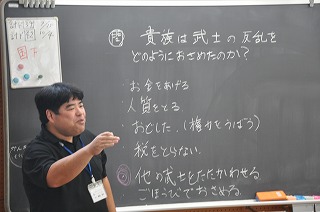 問 貴族は武士の反乱を
どのようにおさめたのか？
・お金をあげる
・人質をとる
・おとした.(権力をうばう)
・税をとらない
・他の武士とたたかわせる
ごほうびでおさめる。